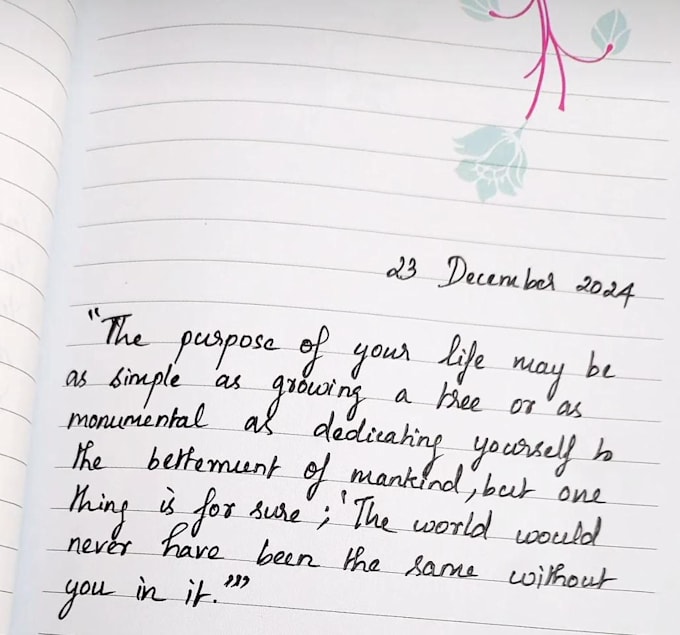 23 December 2024
"The purpose of your life may be
as simple as growing a tree or as
monumental as dedicating yourself to
the betterment of mankind, but one
thing is for sure; 'The world would
never have been the same without
you in it.'"